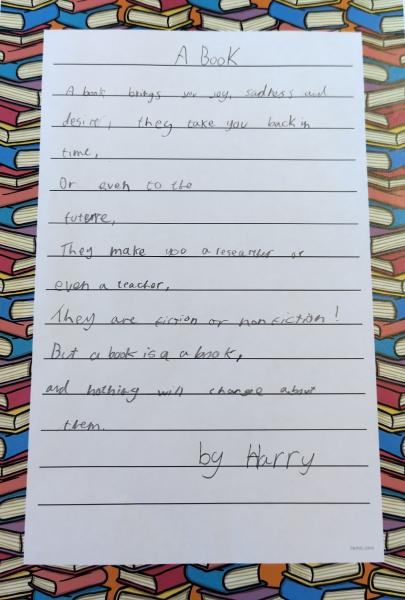 A Book
A book brings you joy, sadness and
desire, they take you back in
time,
Or even to the
future,
They make you a researcher or
even a teacher,
They are fiction or non fiction!
But a book is a a book,
and nothing will change about
them.
by Harry